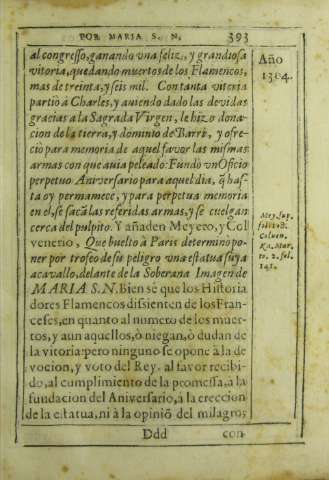 POR MARIA S. N. 393
al congresso, ganando vna feliz, y grandiosa
vitoria, quedando muertos de los Flamencos,
mas de treinta, y seis mil. Con tanta vitoria
partiò à Charles, y auiendo dado las devidas
gracias a la Sagrada Virgen, le hizo dona-
cion de la tierra, y dominio de Barri, y ofre-
cio para memoria de aquel favor las mismas
armas con que auia peleado: Fundò vn Oficio
perpetuo Aniversario para aquel dia, q̃ has-
ta oy permanece, y para perpetua memoria
en el, se sacã las referidas armas, y se cuelgan
cerca del pulpito. Y añaden Meyero, y Col
venerio, Que buelto à Paris determinò po-
ner por trofeo de su peligro vna estatua suya
a cavallo, delante de la Soberana Imagen de
MARIA S.N. Bien sè que los Historia
dores Flamencos dissienten de los Fran-
ceses, en quanto al numero de los muer-
tos, y aun aquellos, ò niegan, ò dudan de
la vitoria: pero ninguno se opone à la de
vocion, y voto del Rey, al favor recibi-
do, al cumplimiento de la promessa, à la
fundacion del Aniversario, à la ereccion
de la estatua, ni à la opiniõ del milagro;
Ddd con
Año
1304.
Mey. sup.
Colven.
Ka. Mar.
to. 2. fol.
141.